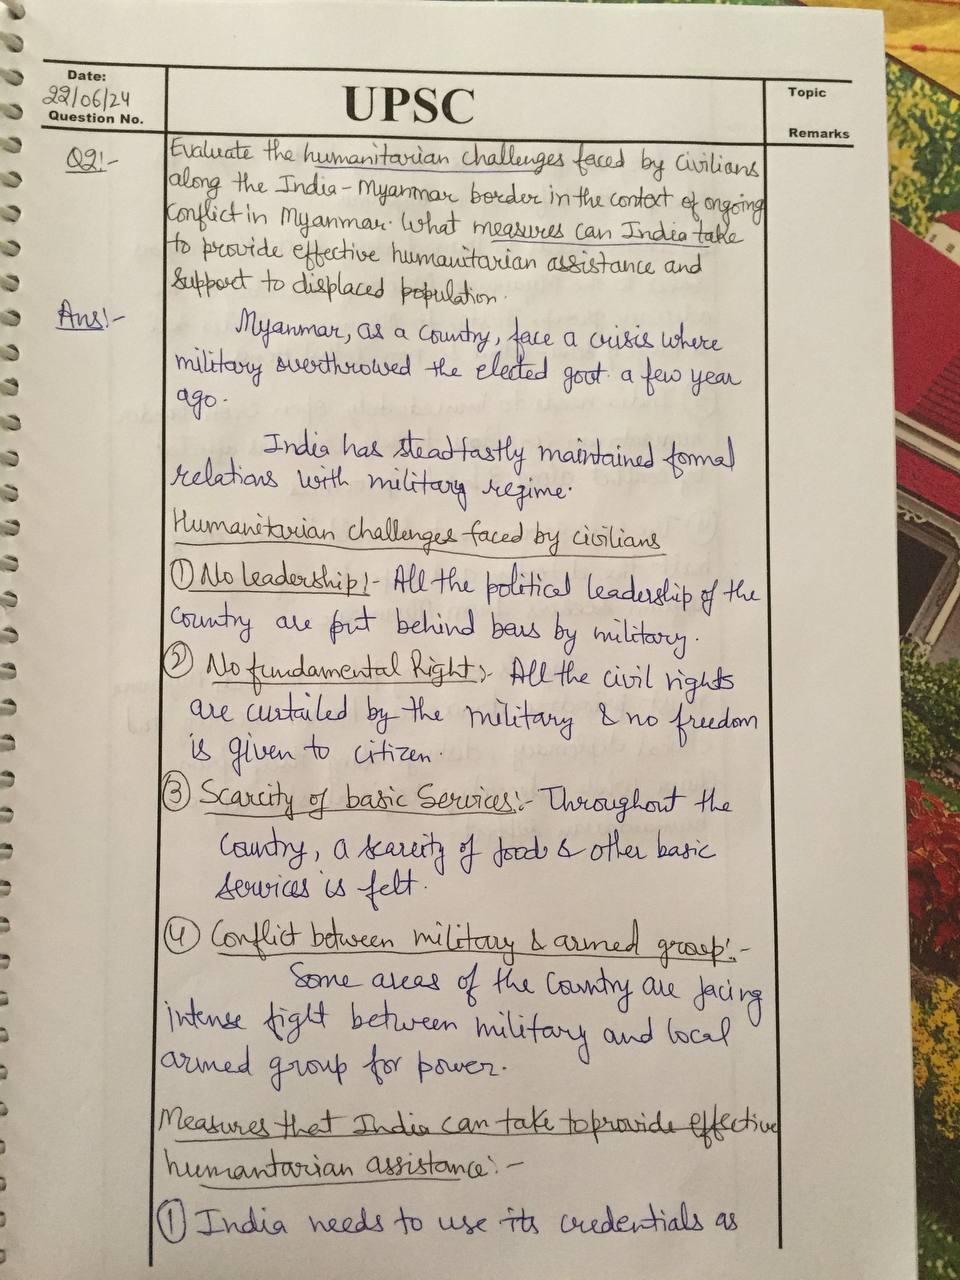 Date:
22/06/24
Question No.
UPSC
Topic
Remarks
Q2:-
Evaluate the humanitarian challenges faced by civilians
along the India-Myanmar border in the context of ongoing
conflict in Myanmar. What measures can India take
to provide effective humanitarian assistance and
support to displaced population.
Ans:-
Myanmar, as a country, face a crisis where
military overthrowed the elected govt. a few year
ago.
India has steadfastly maintained formal
relations with military regime.
Humanitarian challenges faced by civilians
① No leadership:- All the political leadership of the
country are put behind bars by military.
② No fundamental Right:- All the civil rights
are curtailed by the military & no freedom
is given to citizen.
③ Scarcity of basic Services:- Throughout the
country, a scarcity of foods & other basic
services is felt.
④ Conflict between military & armed group:-
Some areas of the country are facing
intense fight between military and local
armed group for power.
Measures that India can take to provide effective
humantarian assistance:-
① India needs to use its credentials as